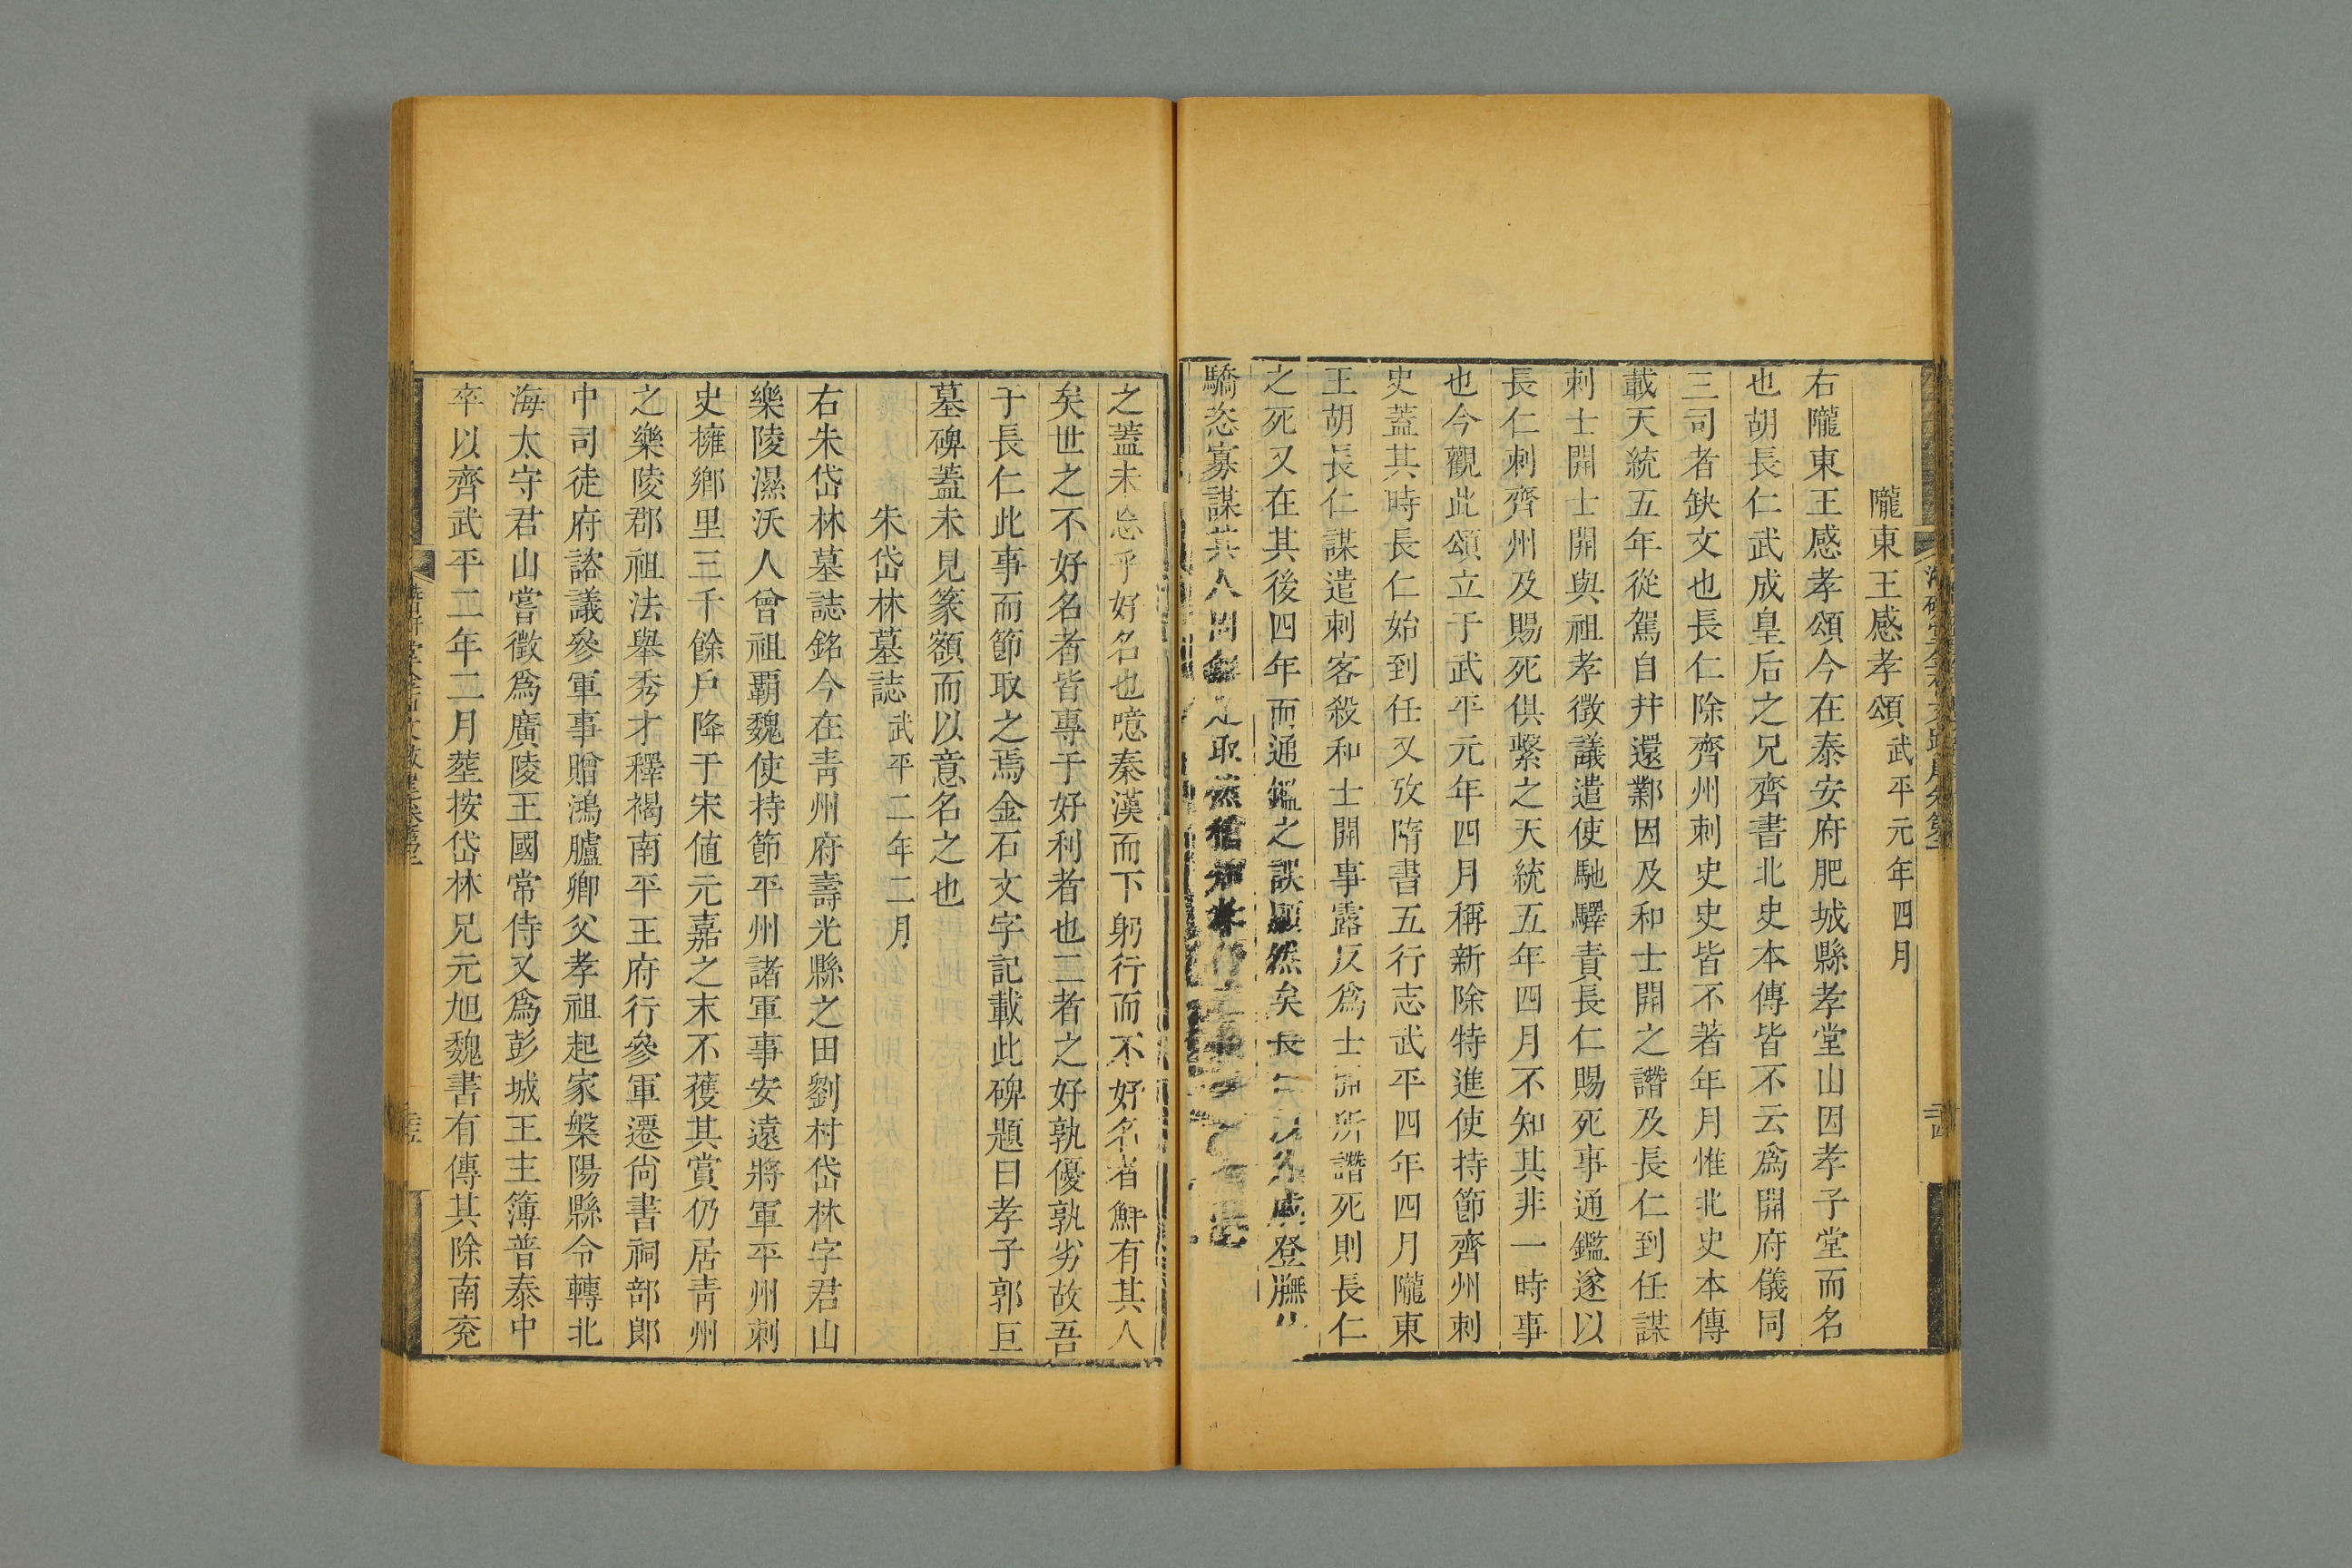 隴東王感孝頌武平元年四月
右隴東王感孝頌今在泰安府肥城縣孝堂山因孝子堂而名
也胡長仁武成皇后之兄齊書北史本傳皆不云爲開府儀同
三司者缺文也長仁除齊州刺史史皆不著年月惟北史本傳
載天統五年從駕自并還鄴因及和士開之譖及長仁到任謀
刺士開士開與祖孝徵議遣使馳驛責長仁賜死事通鑑遂以
長仁刺齊州及賜死俱繫之天統五年四月不知其非一時事
也今觀此頌立于武平元年四月稱新除特進使持節齊州刺
史蓋其時長仁始到任又攷隋書五行志武平四年四月隴東
王胡長仁謀遣刺客殺和士開事露反爲士開所譖死則長仁
之死又在其後四年而通鑑之誤顯然矣長仁以外戚登膴仕
驕恣寡謀其人固無足取然猶知孝
之蓋未忘乎好名也噫秦漢而下躬行而不好名者鮮有其人
矣世之不好名者皆專于好利者也二者之好孰優孰劣故吾
于長仁此事而節取之焉金石文字記載此碑題曰孝子郭巨
墓碑蓋未見篆額而以意名之也
朱岱林墓誌武平二年二月
右朱岱林墓誌銘今在靑州府壽光縣之田劉村岱林字君山
樂陵濕沃人曾祖霸魏使持節平州諸軍事安遠將軍平州刺
史擁鄉里三千餘戶降于宋値元嘉之末不獲其賞仍居靑州
之樂陵郡祖法舉秀才釋褐南平王府行參軍遷尙書祠部郎
中司徒府諮議參軍事贈鴻臚卿父孝祖起家槃陽縣令轉北
海太守君山嘗徵爲廣陵王國常侍又爲彭城王主簿普泰中
卒以齊武平二年二月塟按岱林兄元旭魏書有傳其除南兗